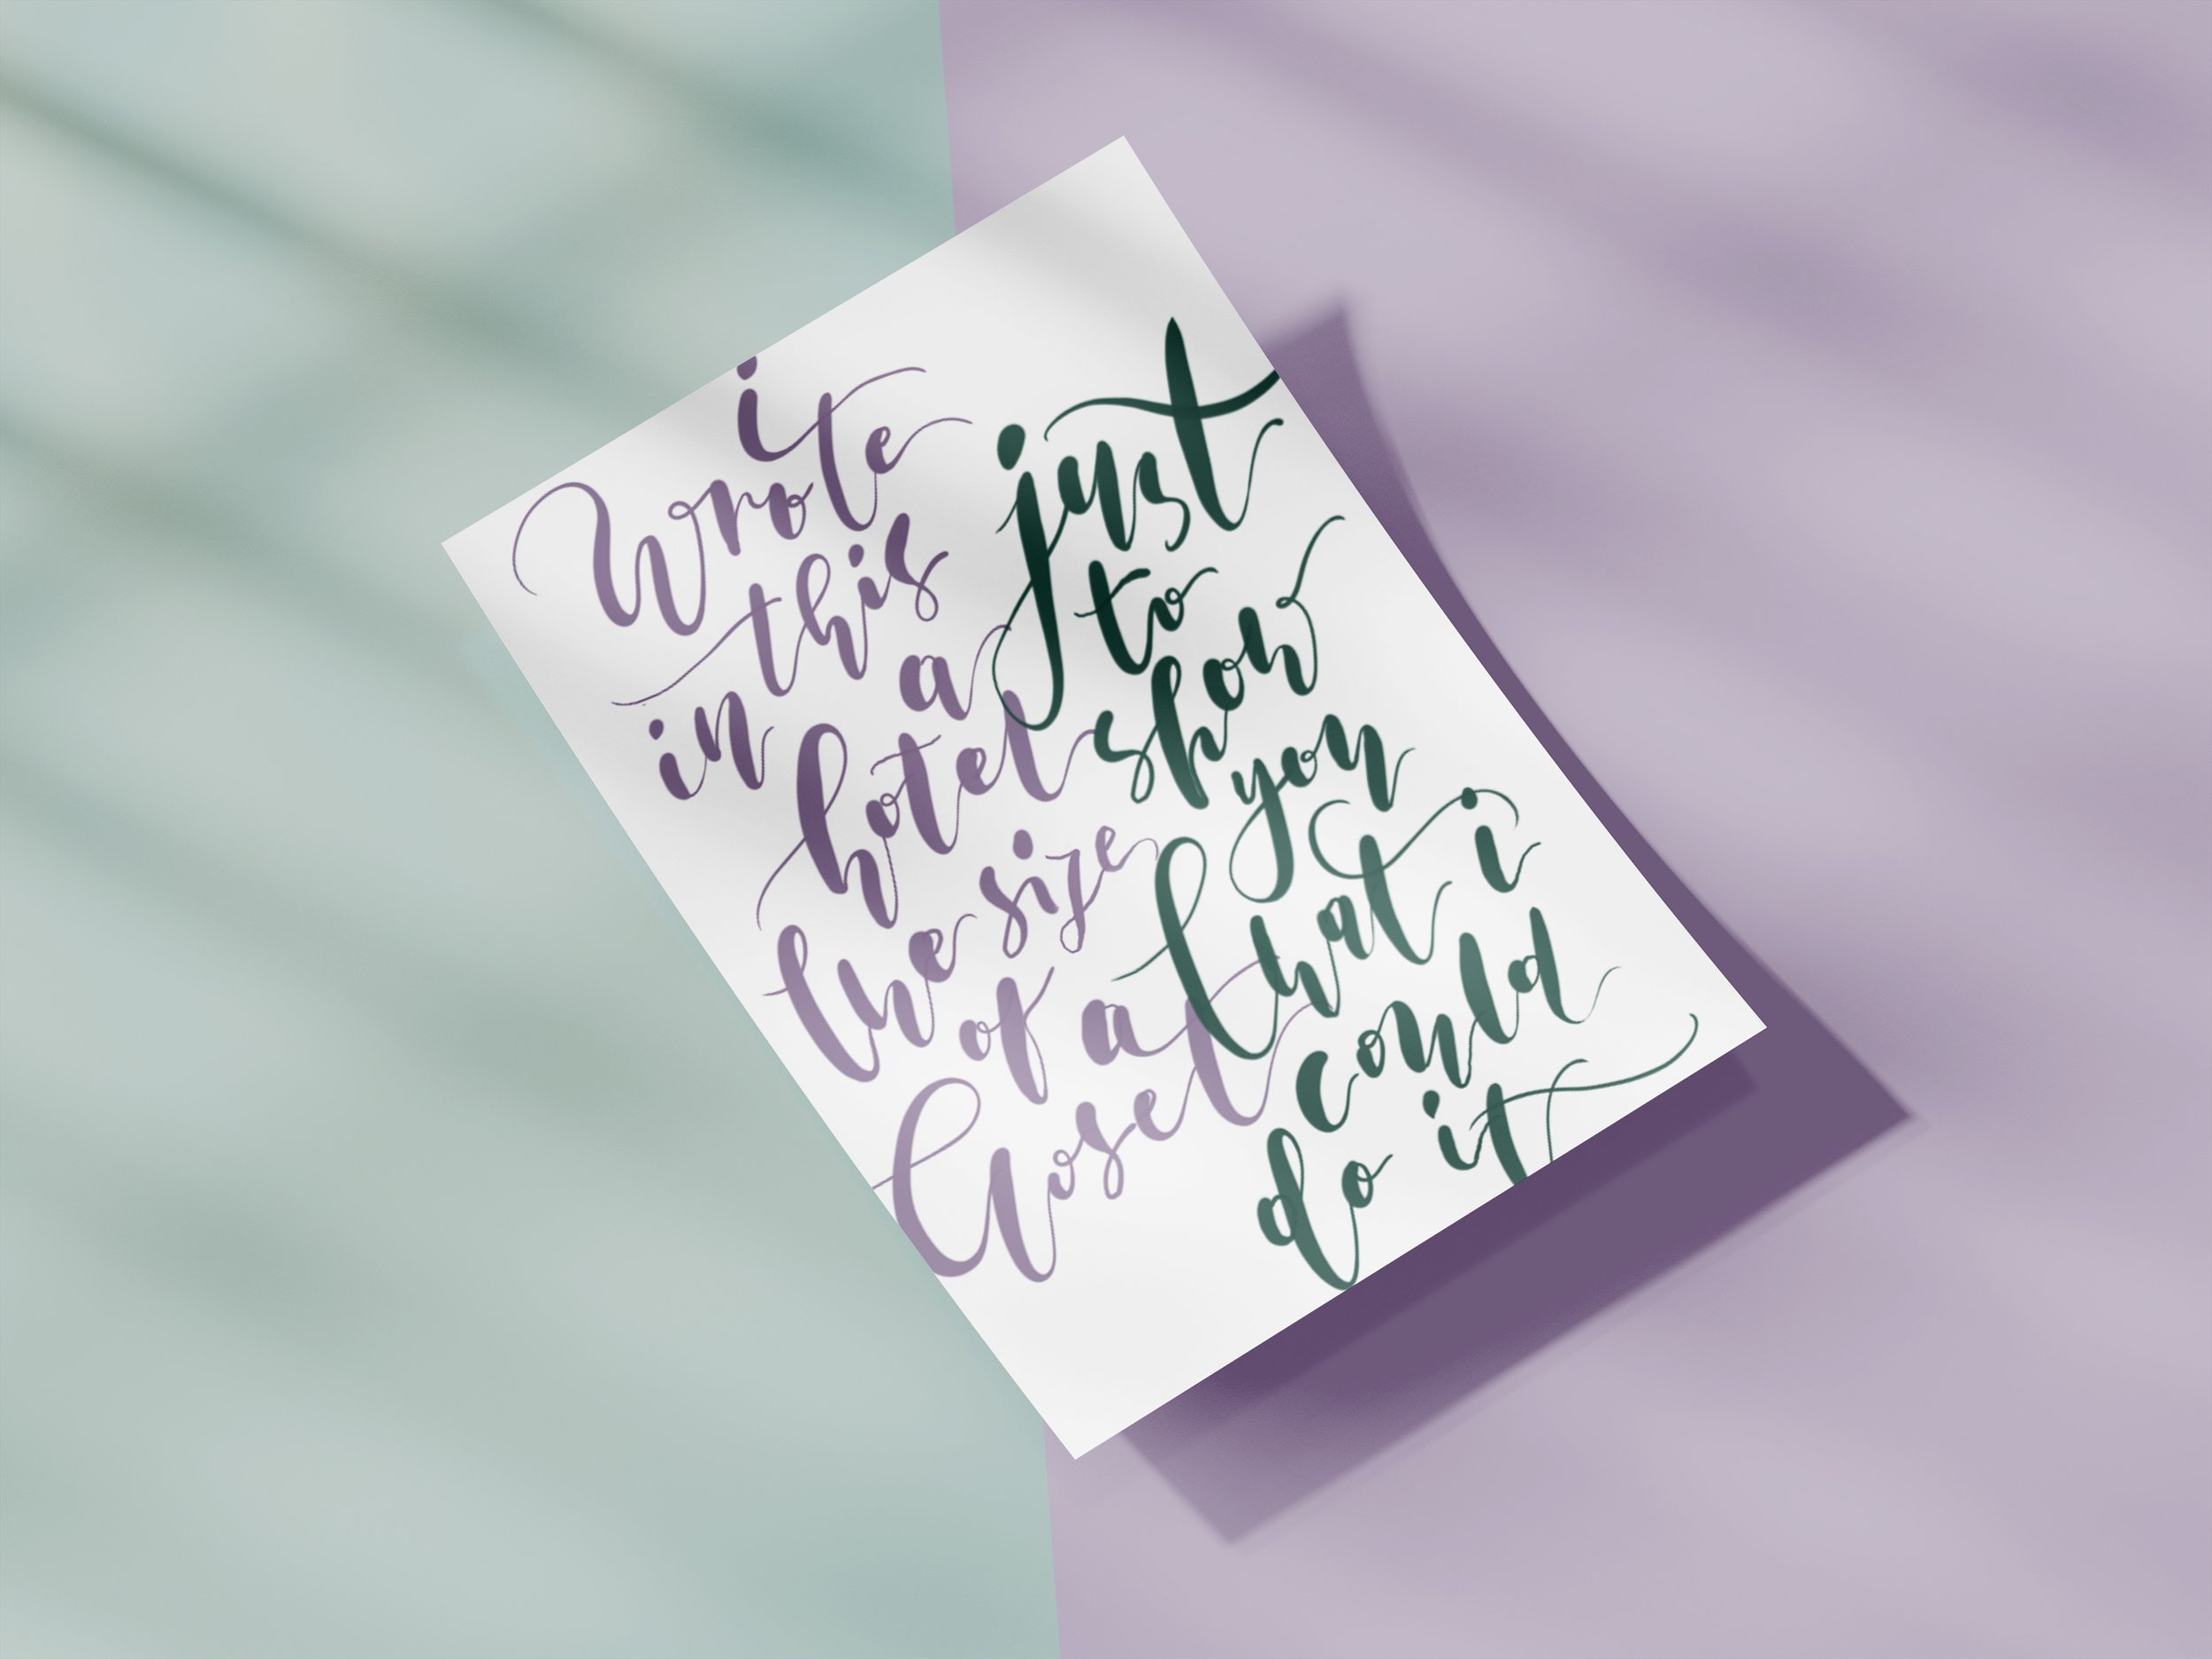 i
wrote
this
in a
hotel
the size
of a
closet
just
to
show
you
that i
could
do it